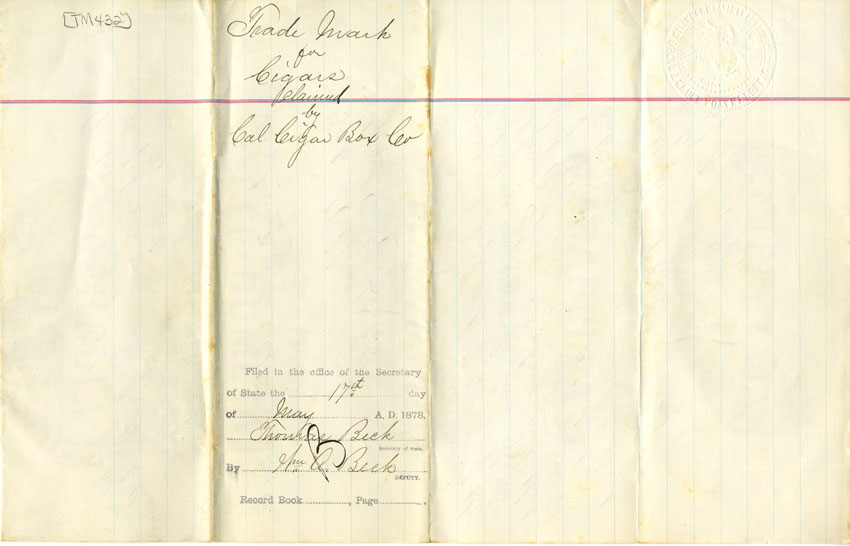 [TM432]
Trade Mark
for
Cigars
claimed
by
Cal Cigar Box Co
Filed in the office of the Secretary
of State the 17st day
of May A. D. 1878.
Thomas Beck
Secretary of State.
By Wm A. Beck
DEPUTY.
Record Book , Page .